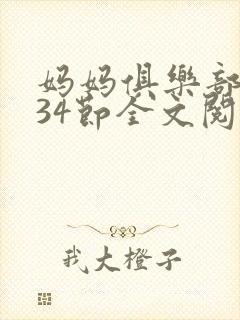 妈妈俱樂部
34節全文閱
我大橙子